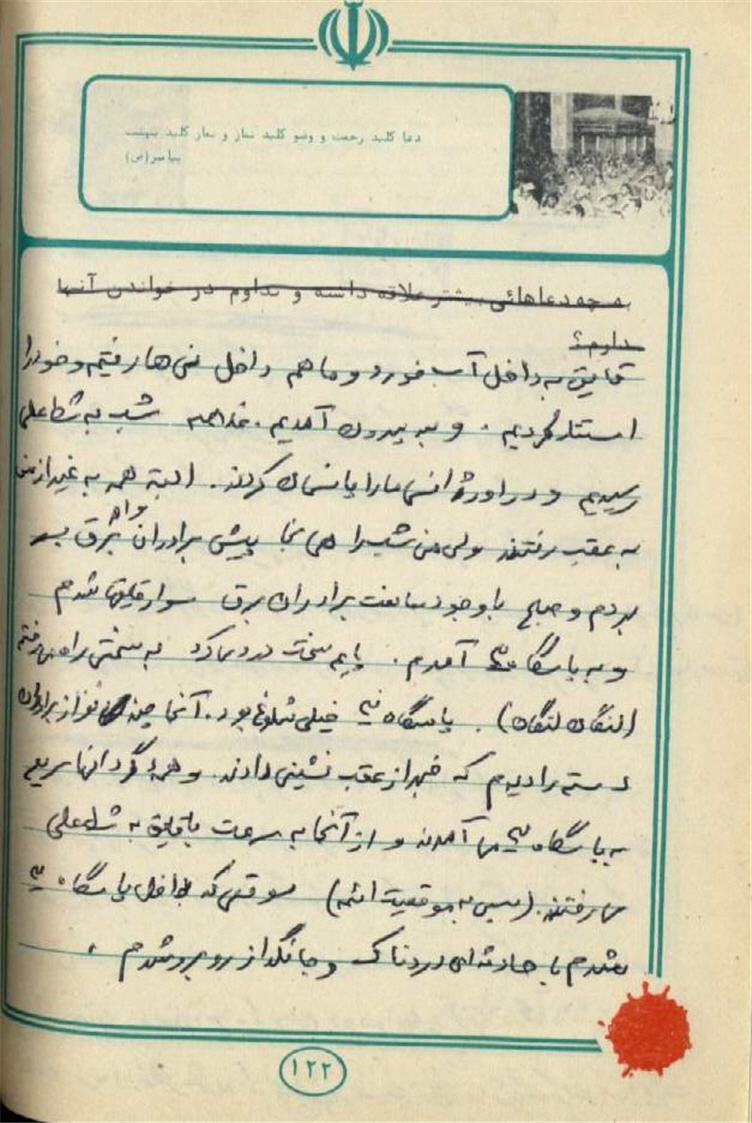 دعا کلید رحمت و وضو کلید نماز و نماز کلید بهشت
پیامبر (ص)
به چه دعاهائی بیشتر علاقه داشته و تداوم در خواندن آنها
دارم؟
قایق به داخل آب خورد و ما هم داخل نی ها رفتیم و خود را
استتار کردیم . و به بیرون آمدیم . خلاصه شب به شط علی
رسیدیم و در اورژانس ما را پانسمان کردند . البته همه به غیر از من
به عقب رفتند ولی من شب را همانجا پیش برادران برق بسر
بردم و صبح با وجود ممانعت برادران برق سوار قایق شدم
و به پاسگاه آمدم . پایم سخت درد میکرد به سختی راه می رفتم
(لنگان لنگان) . پاسگاه خیلی شلوغ بود . آنجا چند نفر از برادران
دسته را دیدم که خبر از عقب نشینی دادند . و همهٔ گردانها سریع
به پاسگاه می آمدند و از آنجا به سرعت با قایق به شط علی
می رفتند . (سپس به موقعیت ائمه) موقعی که داخل پاسگاه
شدم با حادثه ای دردناک و جانگداز روبرو شدم .
۱۲۲